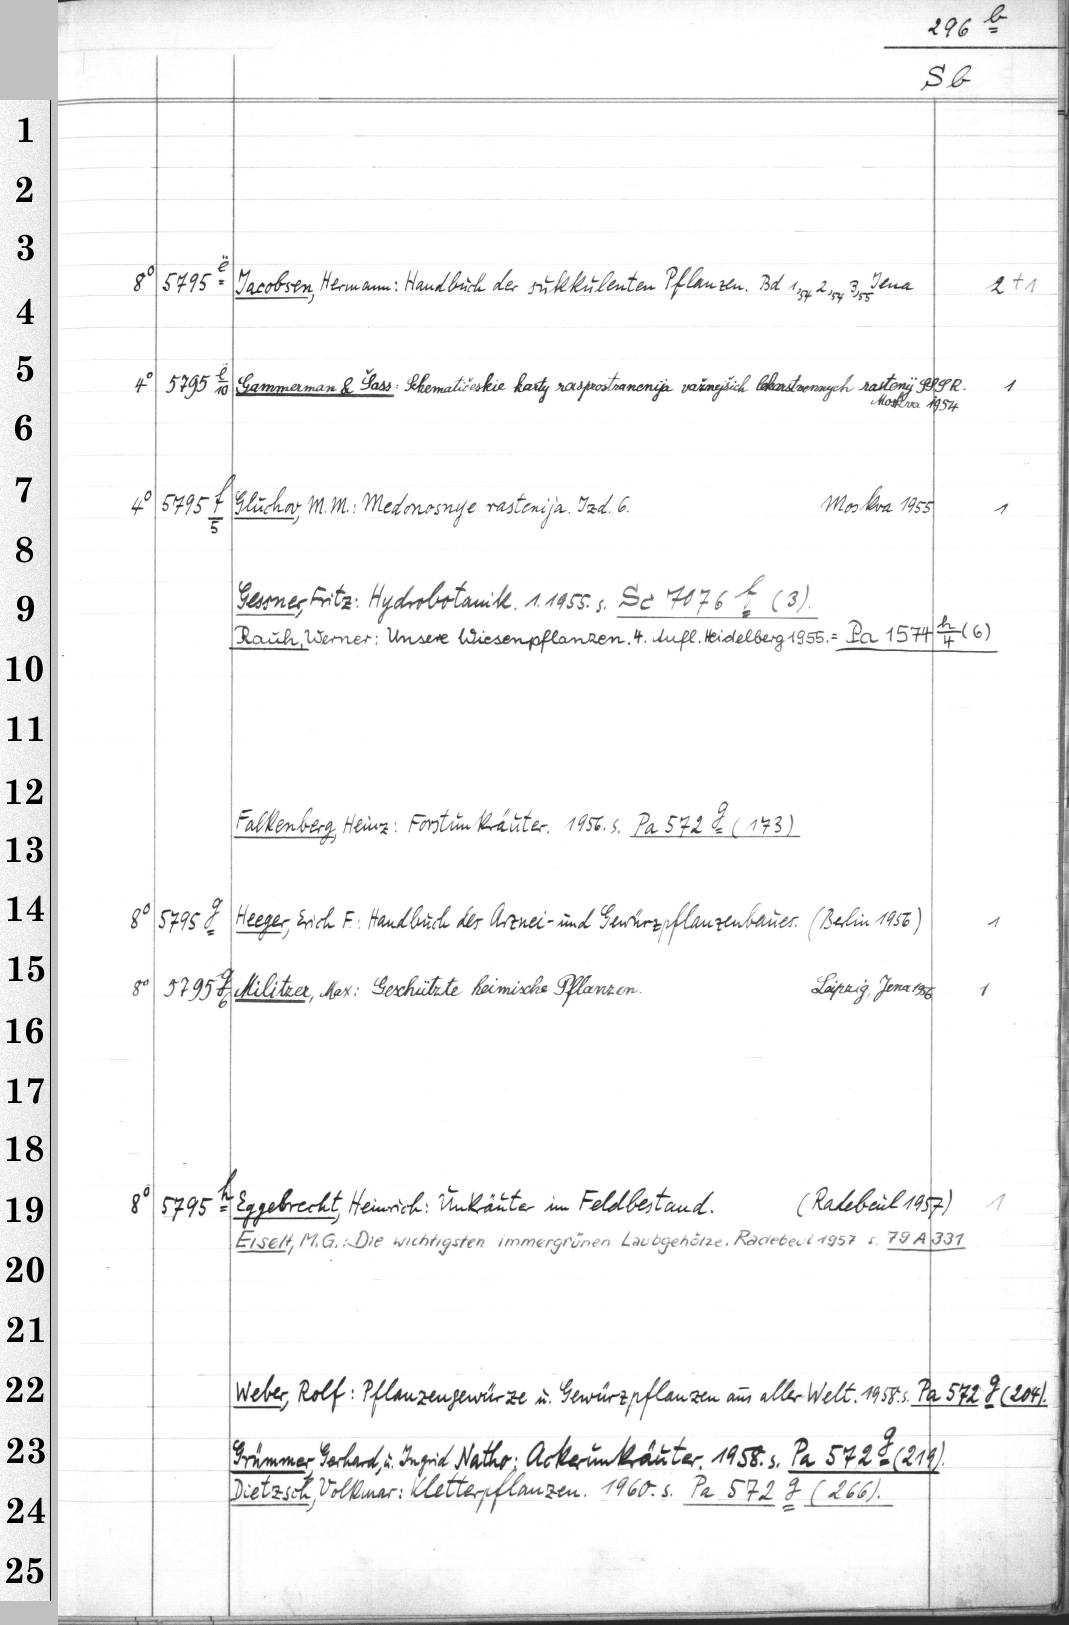 296 b
Sb
1
2
3
8° 5795 ë Jacobsen, Hermann: Handbuch der sukkulenten Pflanzen. Bd 1,54 2,54 3,55 Jena 2+1
4
5
4° 5795 ë/10 Gammerman & Šass: Schematičeskie karty rasprostranenija važnejšich lekarstvennych rastenij SSSR. 1
Moskva 1954
6
7
4° 5795 f/5 Gluchov, M. M.: Medonosnye rastenija. Izd. 6. Moskva 1955 1
8
9
Gessner, Fritz: Hydrobotanik. 1.1955. s. Sc 7076 f (3).
Rauh, Werner: Unsere Wiesenpflanzen. 4. Aufl. Heidelberg 1955. = Pa 1574 h/4 (6)
10
11
12
Falkenberg, Heinz: Forstunkräuter. 1956. s. Pa 572 g (173)
13
14
8° 5795 g Heeger, Erich F.: Handbuch des Arznei- und Gewürzpflanzenbaues. (Berlin 1956) 1
15
8° 5795 g/6 Militzer, Max: Geschützte heimische Pflanzen. Leipzig, Jena 1956 1
16
17
18
19
8° 5795 h Eggebrecht, Heinrich: Unkräuter im Feldbestand. (Radebeul 1957) 1
Eiselt, M.G.: Die wichtigsten immergrünen Laubgehölze. Radebeul 1957 s. 79 A 331
20
21
22
Weber, Rolf: Pflanzengewürze u. Gewürzpflanzen aus aller Welt. 1958. s. Pa 572 g (204).
23
Grümmer, Gerhard, u. Ingrid Natho: Ackerunkräuter. 1958. s. Pa 572 g (219).
Dietzsch, Volkmar: Kletterpflanzen. 1960. s. Pa 572 g (266).
24
25